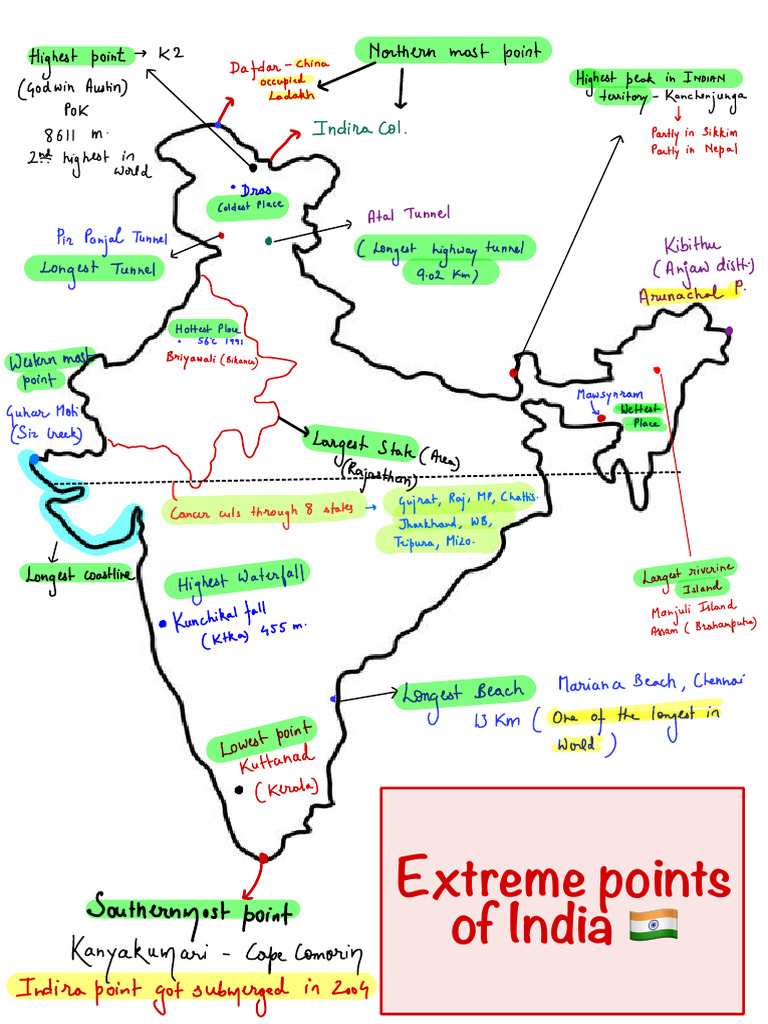 Highest point → K2
(Godwin Austin)
PoK
8611 m.
2nd highest in
world
Dafdar - China
occupied
Ladakh
Northern most point
Indira Col.
Highest peak in INDIAN
territory - Kanchenjunga
Partly in Sikkim
Partly in Nepal
Dras
Coldest Place
Pir Panjal Tunnel
Longest Tunnel
Atal Tunnel
(Longest highway tunnel
9.02 Km)
Kibithu
(Anjaw distt.)
Arunachal P.
Hottest Place
56°C 1991
Briyawali (Bikaner)
Western most
point
Guhar Moti
(Sir Creek)
Mawsynram
Wettest
Place
Largest State (Area)
(Rajasthan)
Cancer cuts through 8 states →
Gujrat, Raj, MP, Chattis.
Jharkhand, WB,
Tripura, Mizo.
Longest coastline
Highest Waterfall
Kunchikal fall
(Ktka) 455 m.
Largest riverine
Island
Manjuli Island
Assam (Brahamputra)
Longest Beach
Mariana Beach, Chennai
13 Km (One of the longest in
World)
Lowest point
Kuttanad
(Kerala)
Extreme points
of India 🇮🇳
Southernmost point
Kanyakumari - Cape Comorin
Indira point got submerged in 2004